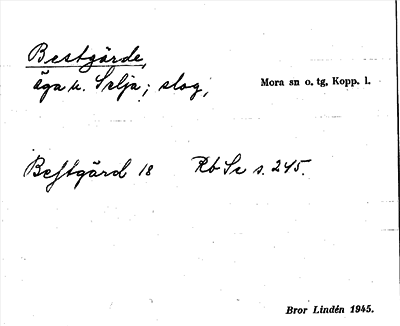 Bestgärde,
äga u. Selja; slog,
Mora sn o. tg, Kopp. l.
Beſtgärd 18 Rb Se s. 245.
Bror Lindén 1945.